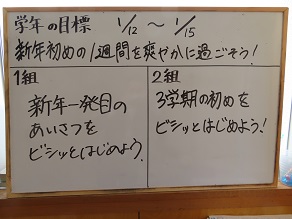 学年の目標 1/12 ～ 1/15
新年初めの1週間を爽やかに過ごそう!
1組
新年一発目の
あいさつを
ビシッとはじめよう.
2組
3学期の初めを
ビシッとはじめよう!